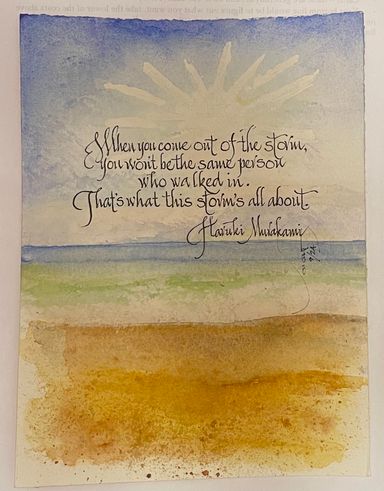 When you come out of the storm,
you won't be the same person
who walked in.
That's what this storm's all about.
Haruki Murakami